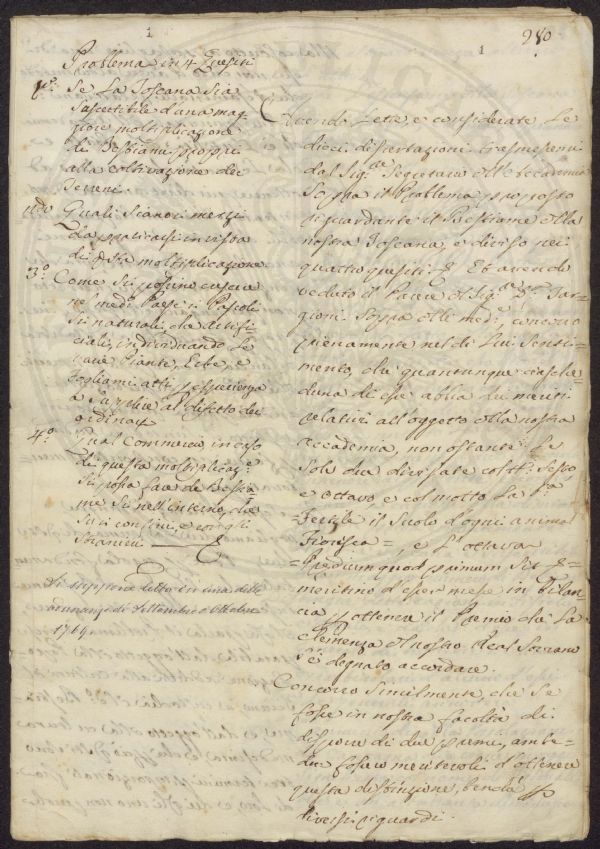 1
1
280
Problema in 4 Quesiti
1.º Se La Toscana sia
suscettibile d'una mag=
giore moltiplicazione
di Bestiami propri
alla coltivazione dei
Terreni.
2do Quali siano i mezzi
da praticarsi in vista
di questa moltiplicazione.
3.º Come si possino
nel med.º Paese i Pascoli
sì naturali, che artifi
ciali, individuando Le
Piante, Erbe, e
Fogliami atti
a supplire al difetto dei
ordinari
4.º Qual Commercio inverso
di questa moltiplicaz.e
si possa fare de Bestia
me sì nell'interno, che
sui confini, e con gli
stranieri.
Si suppone letto in una delle
adunanze di Settembre o Ottobre
1769.
Avendo Lette, e considerate Le
dieci dissertazioni trasmessemi
dal Sig.re Segretario dell'Accademia
sopra il Problema proposto
riguardante il Bestiame della
nostra Toscana, e diviso nei
quattro quesiti. Et avendo
veduto il Parere del Sig.re D.re Tar=
gioni sopra delle med.e, concorro
pienamente nel di Lui senti=
mento, che quantunque ciasche=
duna di esse abbia dei meriti
relativi all'oggetto della nostra
Accademia, nonostante Le
sole due divisate col N.º sesto
e ottavo, e col motto La p.ma
=Fertile il suolo d'ogni
=, e L'ottava
=Praedium quod primum sit
meritino d'esser messe in Bilan
cia p ottenere il Premio che La
clemenza del nostro Real Sovrano
si è degnato accordare.
Concorro similmente, che se
fosse in nostra facoltà di
disporre di due premi, ambe=
due fossero meritevoli d'ottenere
questa distinzione, benché p
diversi riguardi.